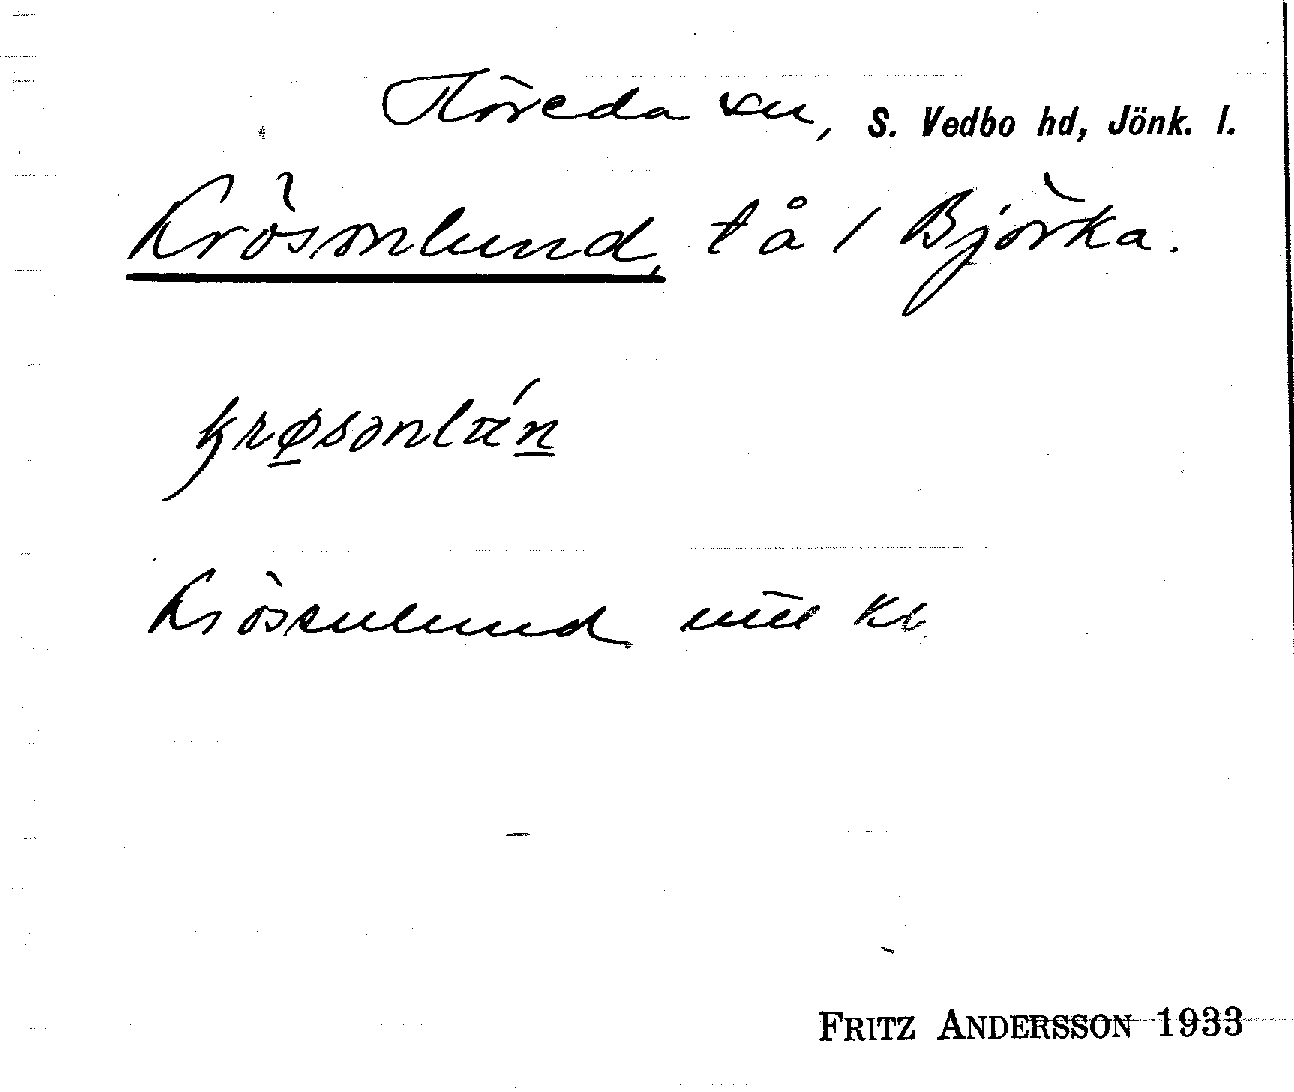 Flöreda sn, S. Vedbo hd, Jönk. l.
Krösonlund, tå / Björka.
krøsonlán
Krösenlund
FRITZ ANDERSSON 1933